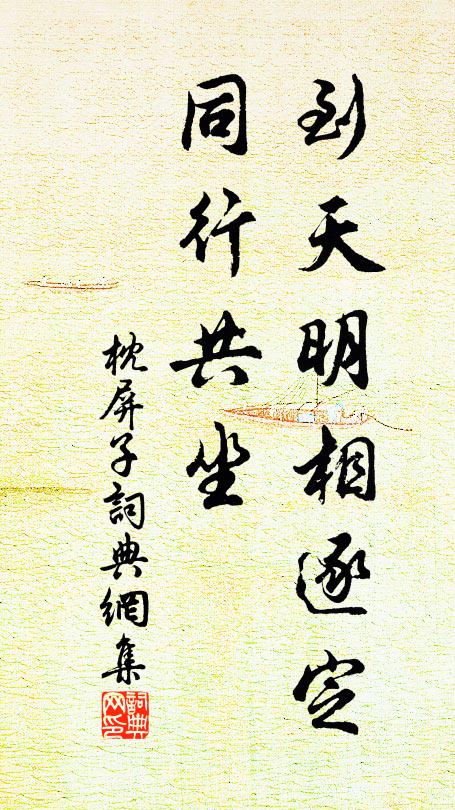 到天明相逐定
同行共坐
枕屏子詞典網集
詞典
网印